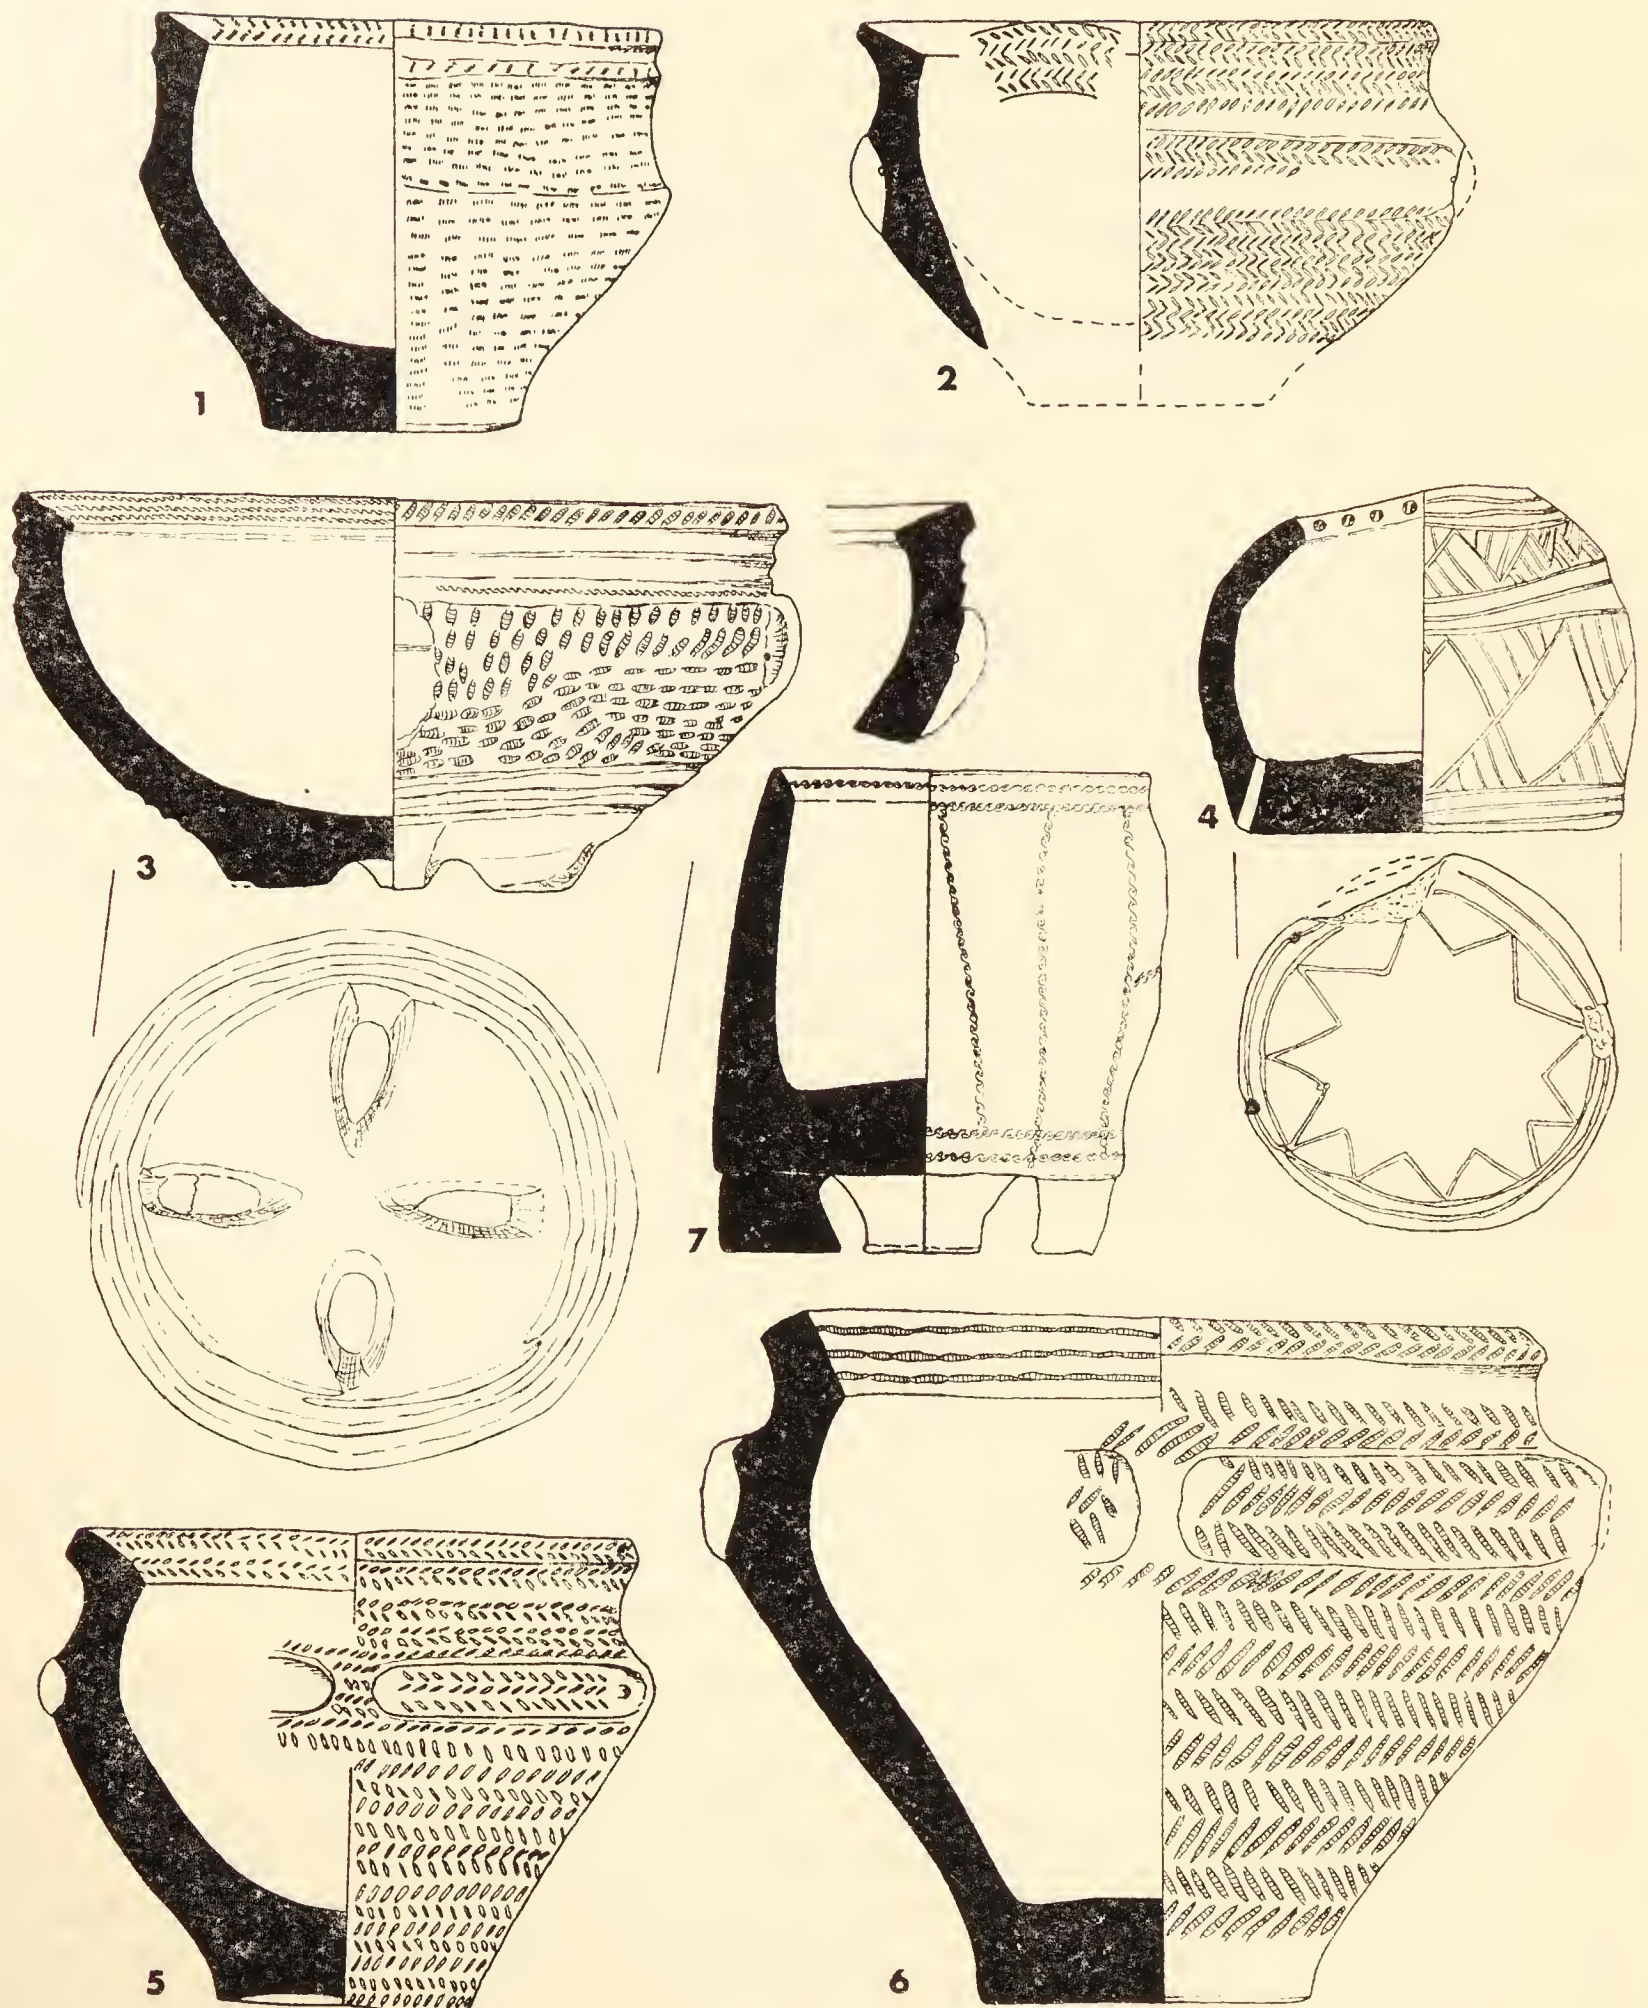 1
2
3
4
7
5
6